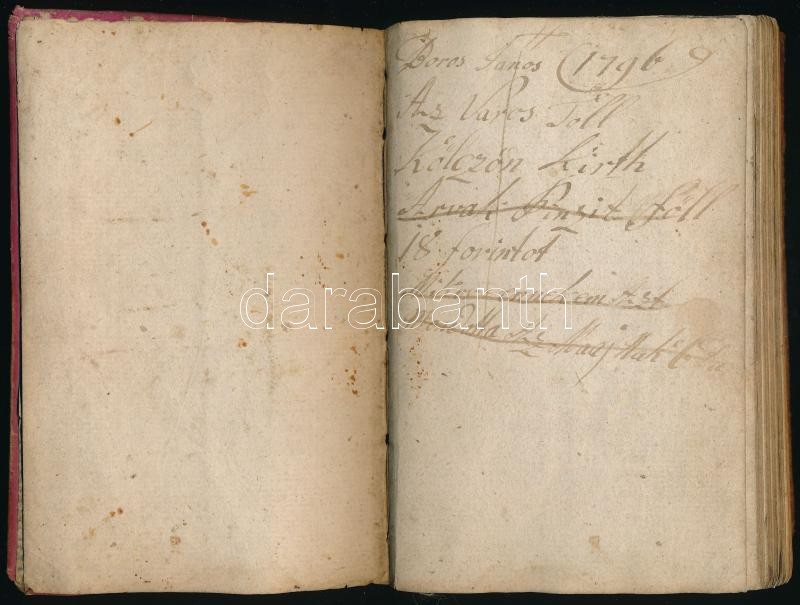 Boros Janos 1796
Az Varos Töll
Kölczön kirth
Arvak Pinzit föll
18 forintot
Azt
Az
darabanth